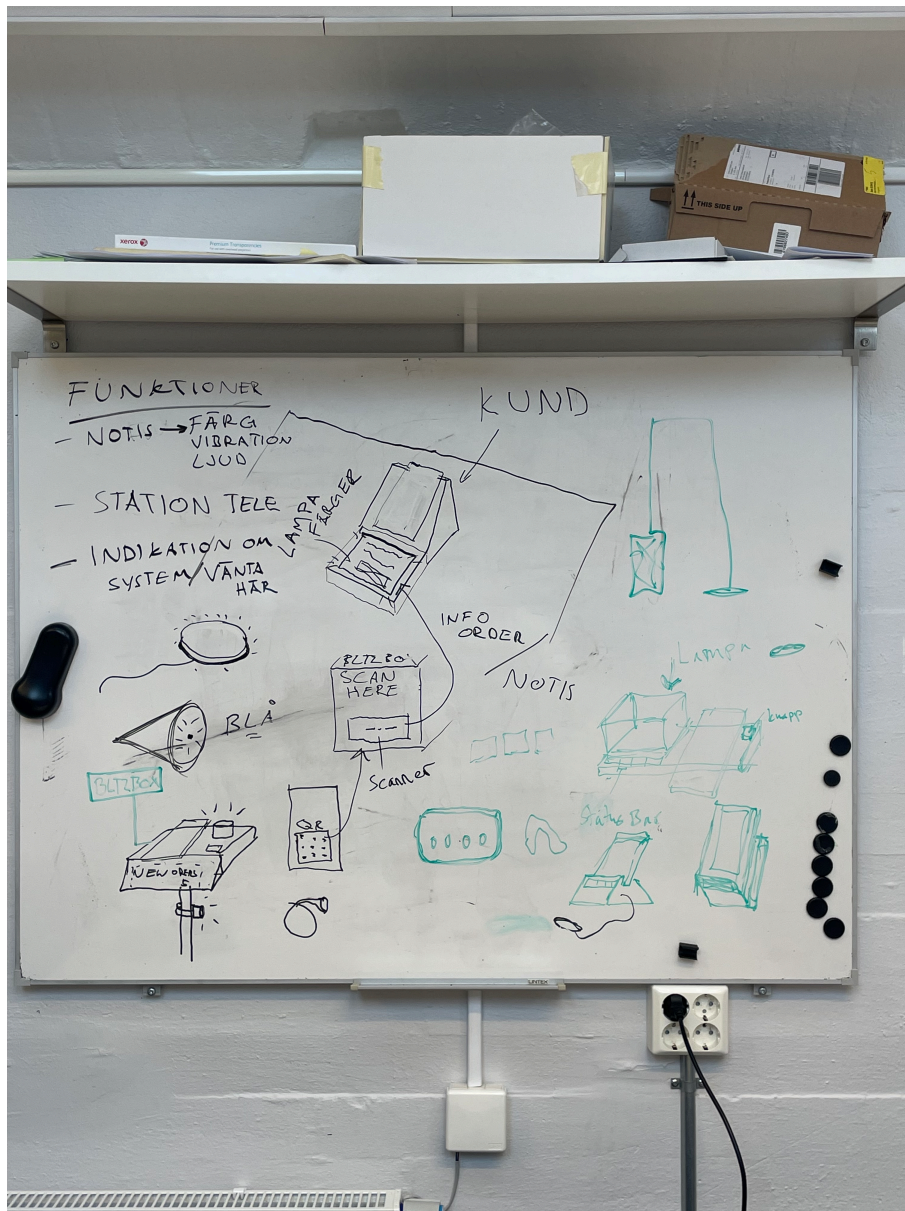 xerox
Premium Transparencies
THIS SIDE UP
FUNKTIONER
- NOTIS → FÄRG
VIBRATION
LJUD
- STATION TELE
- INDIKATION OM
SYSTEM/VÄNTA
HÄR
KUND
LAMPA
FÄRGER
INFO
ORDER
NOTIS
BLTZBOX
SCAN
HERE
Scanner
QR
BLÅ
BLTZBOX
NEW ORERS!
5
Lampa
knapp
Status Bar
LINTEX